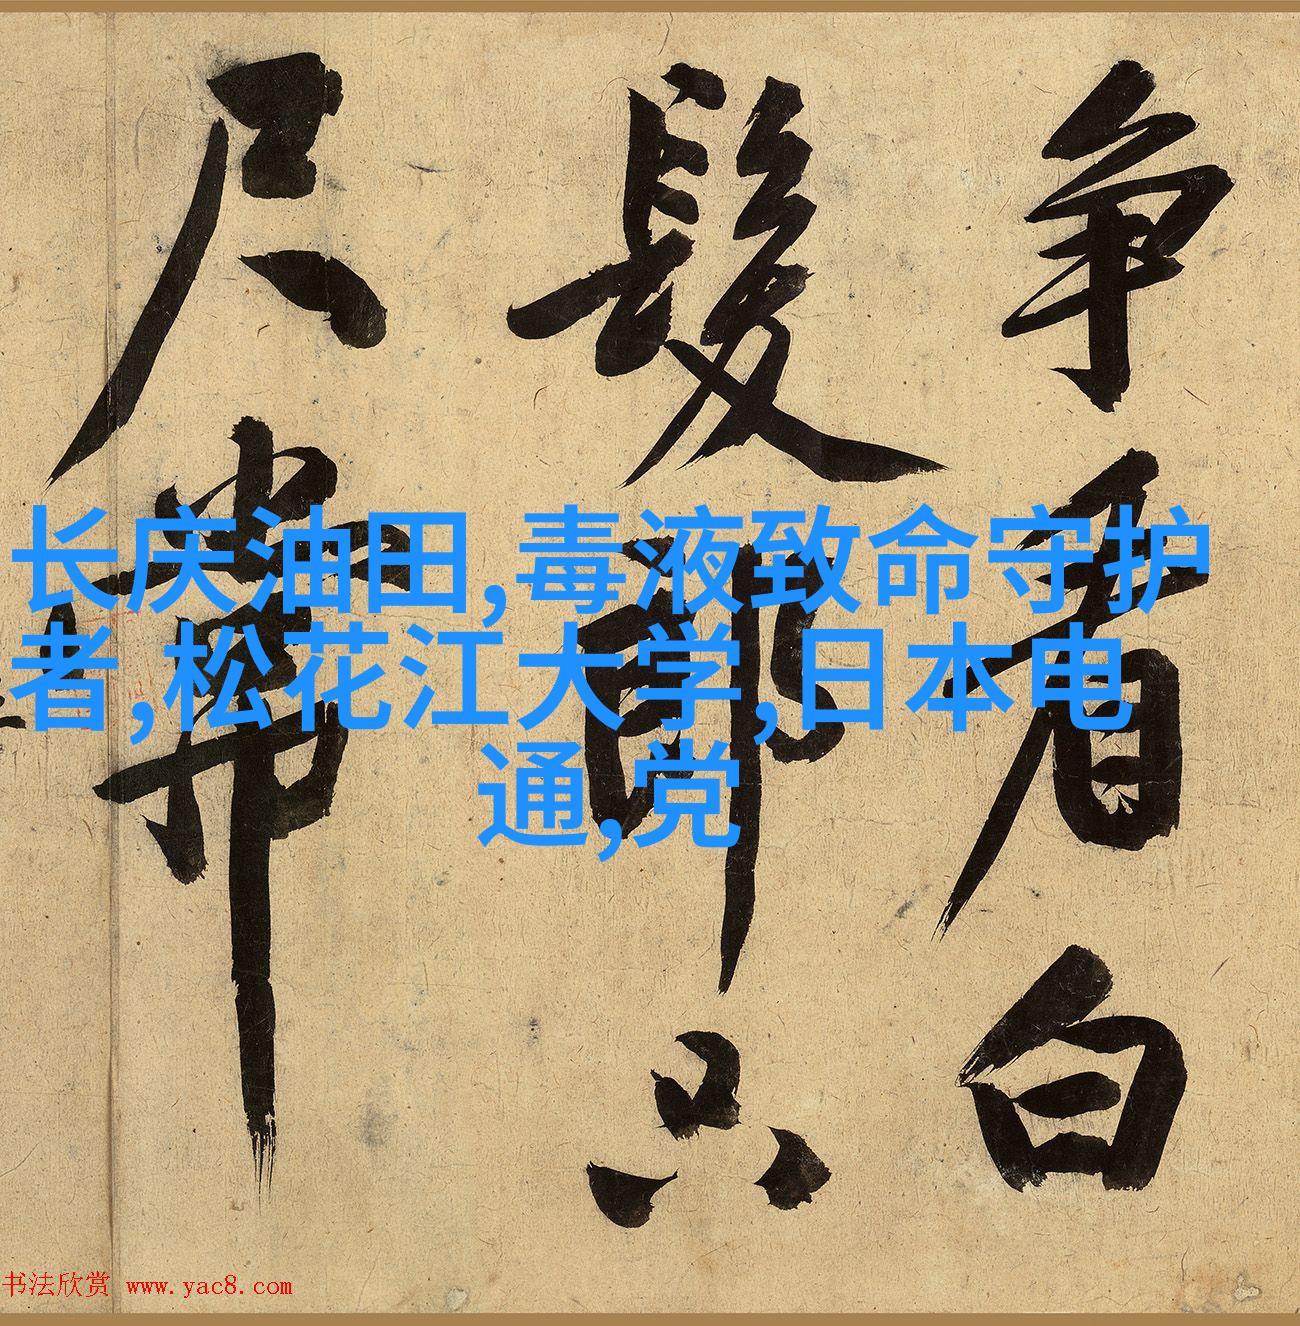 争看白
髮郎只
尺常
长庆油田,毒液致命守护
者,松花江大学,日本电
通,党
书法欣赏 www.yac8.com